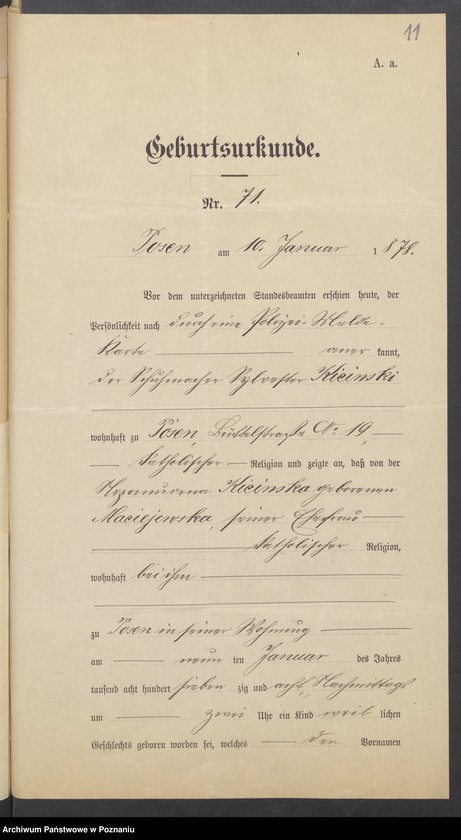 11
A. a.
Geburtsurkunde.
Nr. 71.
Posen am 10. Januar 1878.
Vor dem unterzeichneten Standesbeamten erschien heute, der
Persönlichkeit nach durch eine Polizei-Melde-
karte anerkannt,
der Schuhmacher Sylvester Kicinski
wohnhaft zu Posen, Büttelstraße No 19,
katholischer Religion und zeigte an, daß von der
Kicinska geborenen
Maciejewska, seiner Ehefrau
katholischer Religion,
wohnhaft bei ihm
zu Posen in seiner Wohnung
am neunten Januar des Jahres
tausend acht hundert siebenzig und acht, Nachmittags
um zwei Uhr ein Kind weiblichen
Geschlechts geboren worden sei, welches den Vornamen
Archiwum Państwowe w Poznaniu